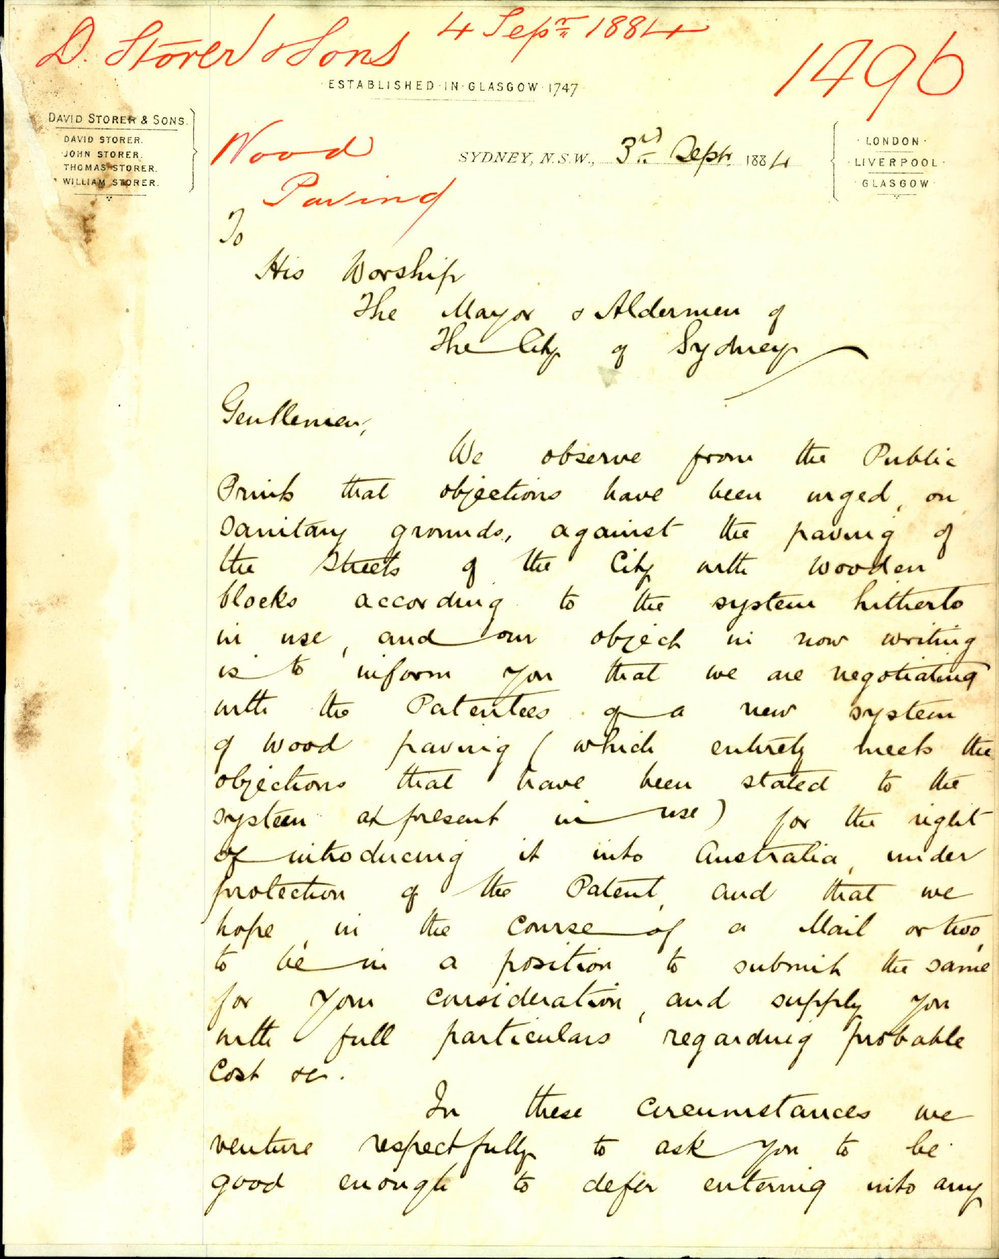 D. Storer & Sons 4 Septr 1884
1496
ESTABLISHED·IN·GLASGOW·1747
DAVID STORER & SONS.
DAVID STORER.
JOHN STORER.
THOMAS STORER.
WILLIAM STORER.
Wood
Paving
SYDNEY, N.S.W., 3rd Sept. 1884
LONDON
LIVERPOOL
GLASGOW
To
His Worship
The Mayor & Aldermen of
The City of Sydney
Gentlemen,
We observe from the Public
Prints that objections have been urged, on
sanitary grounds, against the paving of
the Streets of the City with wooden
blocks according to the system hitherto
in use, and our object in now writing
is to inform you that we are negotiating
with the Patentees of a new system
of wood paving (which entirely meets the
objections that have been stated to the
system at present in use) for the right
of introducing it into Australia, under
protection of the Patent, and that we
hope, in the course of a Mail or two,
to be in a position to submit the same
for your consideration, and supply you
with full particulars regarding probable
Cost &c.
In these circumstances we
venture respectfully to ask you to be
good enough to defer entering into any